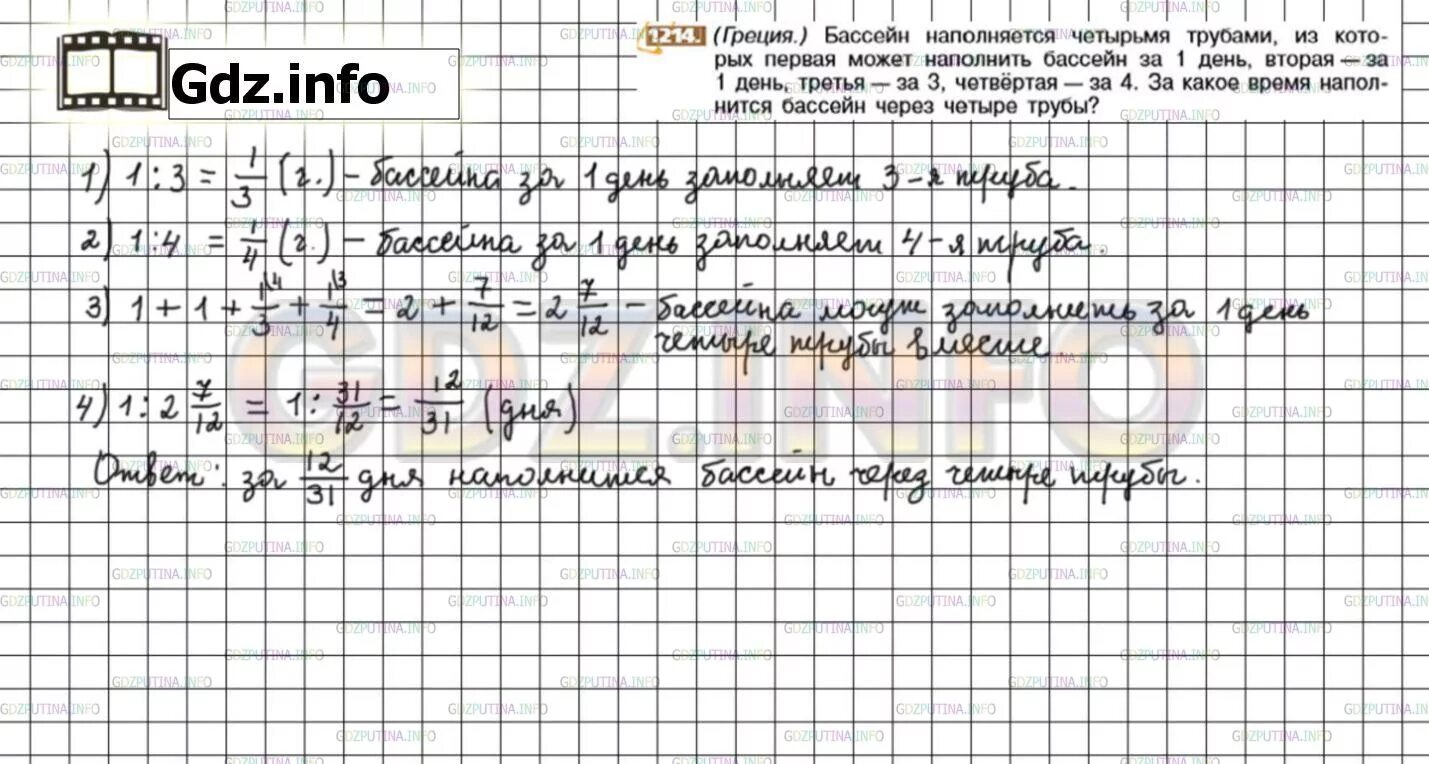 Gdz.info
1214. (Греция.) Бассейн наполняется четырьмя трубами, из кото-
рых первая может наполнить бассейн за 1 день, вторая — за
1 день, третья — за 3, четвёртая — за 4. За какое время напол-
нится бассейн через четыре трубы?
1) 1 : 3 = 1/3 (г.) – бассейна за 1 день заполняет 3-я труба.
2) 1 : 4 = 1/4 (г.) – бассейна за 1 день заполняет 4-я труба.
3) 1 + 1 + 1\4/3 + 1\3/4 = 2 + 7/12 = 2 7/12 – бассейна могут заполнить за 1 день
четыре трубы вместе
4) 1 : 2 7/12 = 1 : 31/12 = 12/31 (дня)
Ответ: за 12/31 дня наполнится бассейн через четыре трубы.
GDZ.INFO
GDZPUTINA.INFO